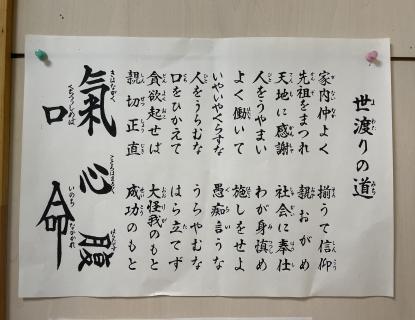 世渡りの道
家内仲よく 揃うて信仰
先祖をまつれ 親おがめ
天地に感謝 社会に奉仕
人をうやまい わが身慎め
よく働いて 施しをせよ
いやいやくらすな 愚痴言うな
人をうらむな うらやむな
口をひかえて はら立てず
貪欲起せば 大怪我のもと
親切正直 成功のもと
氣 心 腹
きはながく
口 命
くちつつしめば いのち ながかれ